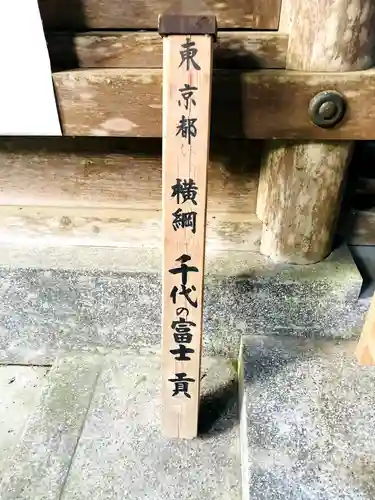 東京都 横綱 千代の富士 貢